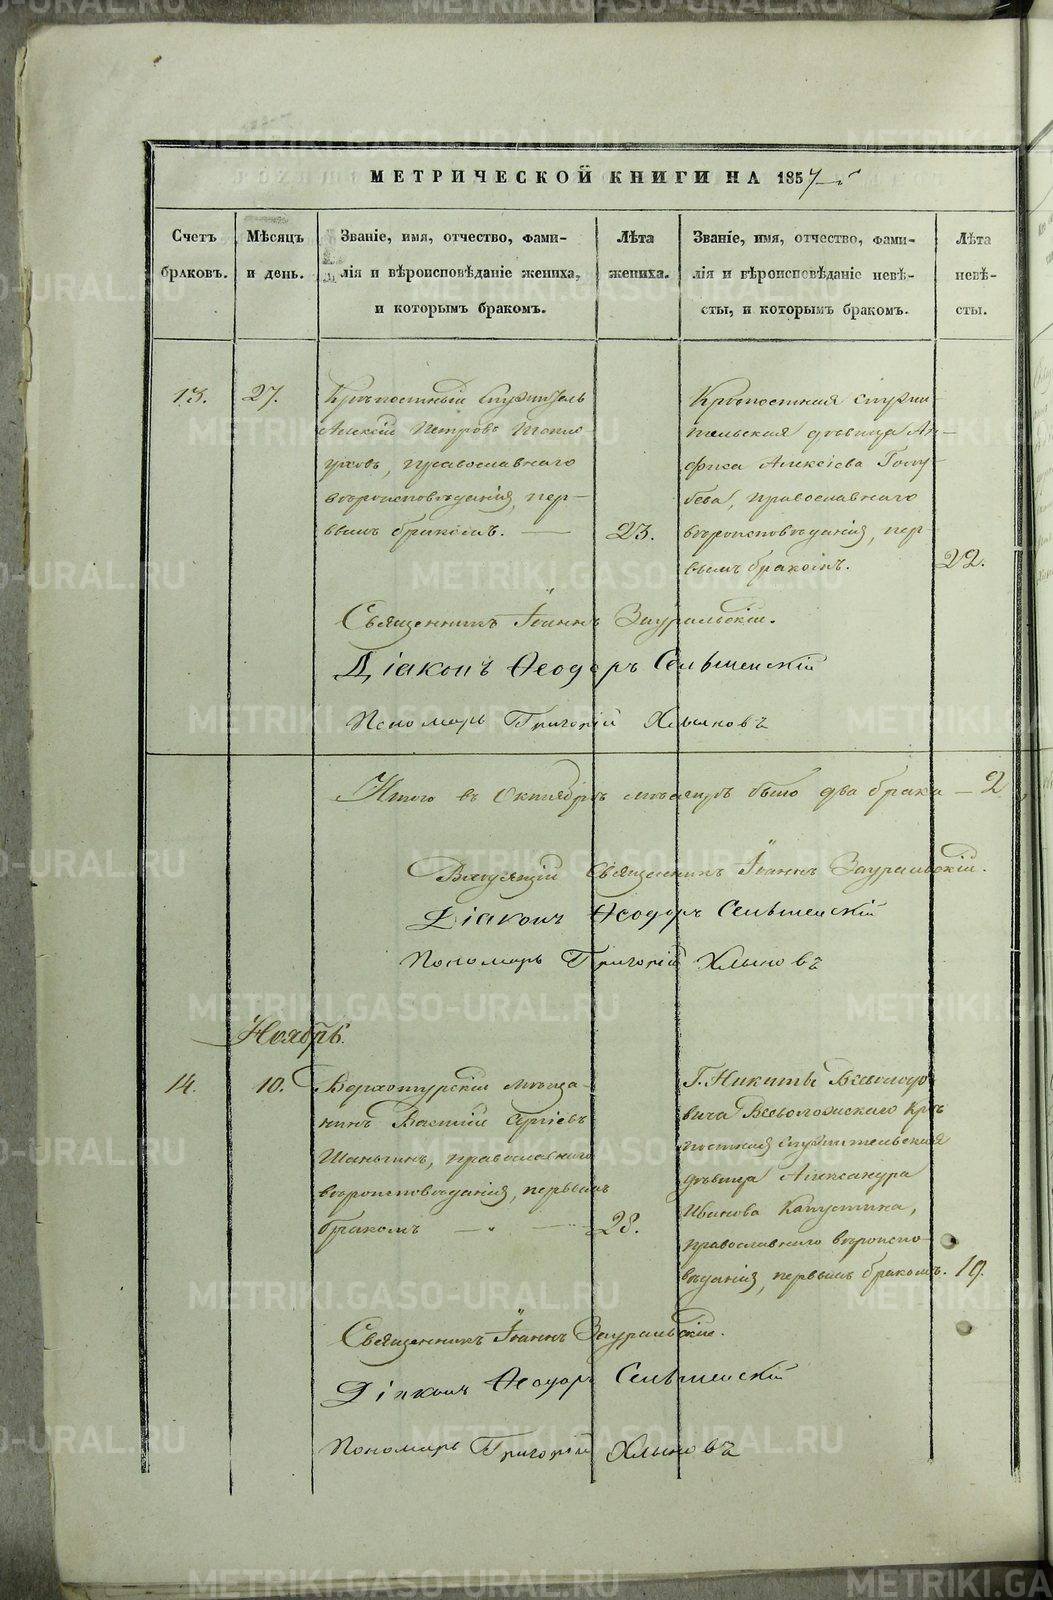 МЕТРИЧЕСКОЙ КНИГИ НА 1857-й
Счетъ браковъ.
Мѣсяцъ и день.
Званіе, имя, отчество, фами-
лія и вѣроисповѣданіе жениха,
и которымъ бракомъ.
Лѣта
жениха.
Званіе, имя, отчество, фами-
лія и вѣроисповѣданіе невѣ-
сты, и которымъ бракомъ.
Лѣта
невѣ-
сты.
13.
27.
Крѣпостный служитель
Алексій Петровъ
православнаго
вѣроисповѣданія, пер-
вымъ бракомъ. —
23.
Крѣпостная служи-
тельская дѣвица Ан-
фиса Алексіева Голу-
бева, православнаго
вѣроисповѣданія, пер-
вымъ бракомъ.
22.
Священникъ Іоаннъ Зауральскій.
Діаконъ Ѳеодоръ Сельменскій
Пономарь Григорій Хлыновъ
Итого въ Октябрѣ мѣсяцѣ было два брака — 2
Священникъ Іоаннъ Зауральскій.
Діаконъ Ѳеодоръ Сельменскій
Пономарь Григорій Хлыновъ
Ноябрь.
14.
10.
Верхотурскій мѣща-
нинъ Василій Сергіевъ
Шаньгинъ, православнаго
вѣроисповѣданія, первымъ
бракомъ — " —
28.
Г. Никиты Всеволодо
вича Всеволожскаго крѣ
постная служительская
дѣвица Александра
Иванова Капустина,
православнаго вѣроиспо-
вѣданія, первымъ бракомъ.
19.
Священникъ Іоаннъ Зауральскій.
Діаконъ Ѳеодоръ Сельменскій
Пономарь Григорій Хлыновъ
METRIKI.GASO-URAL.RU